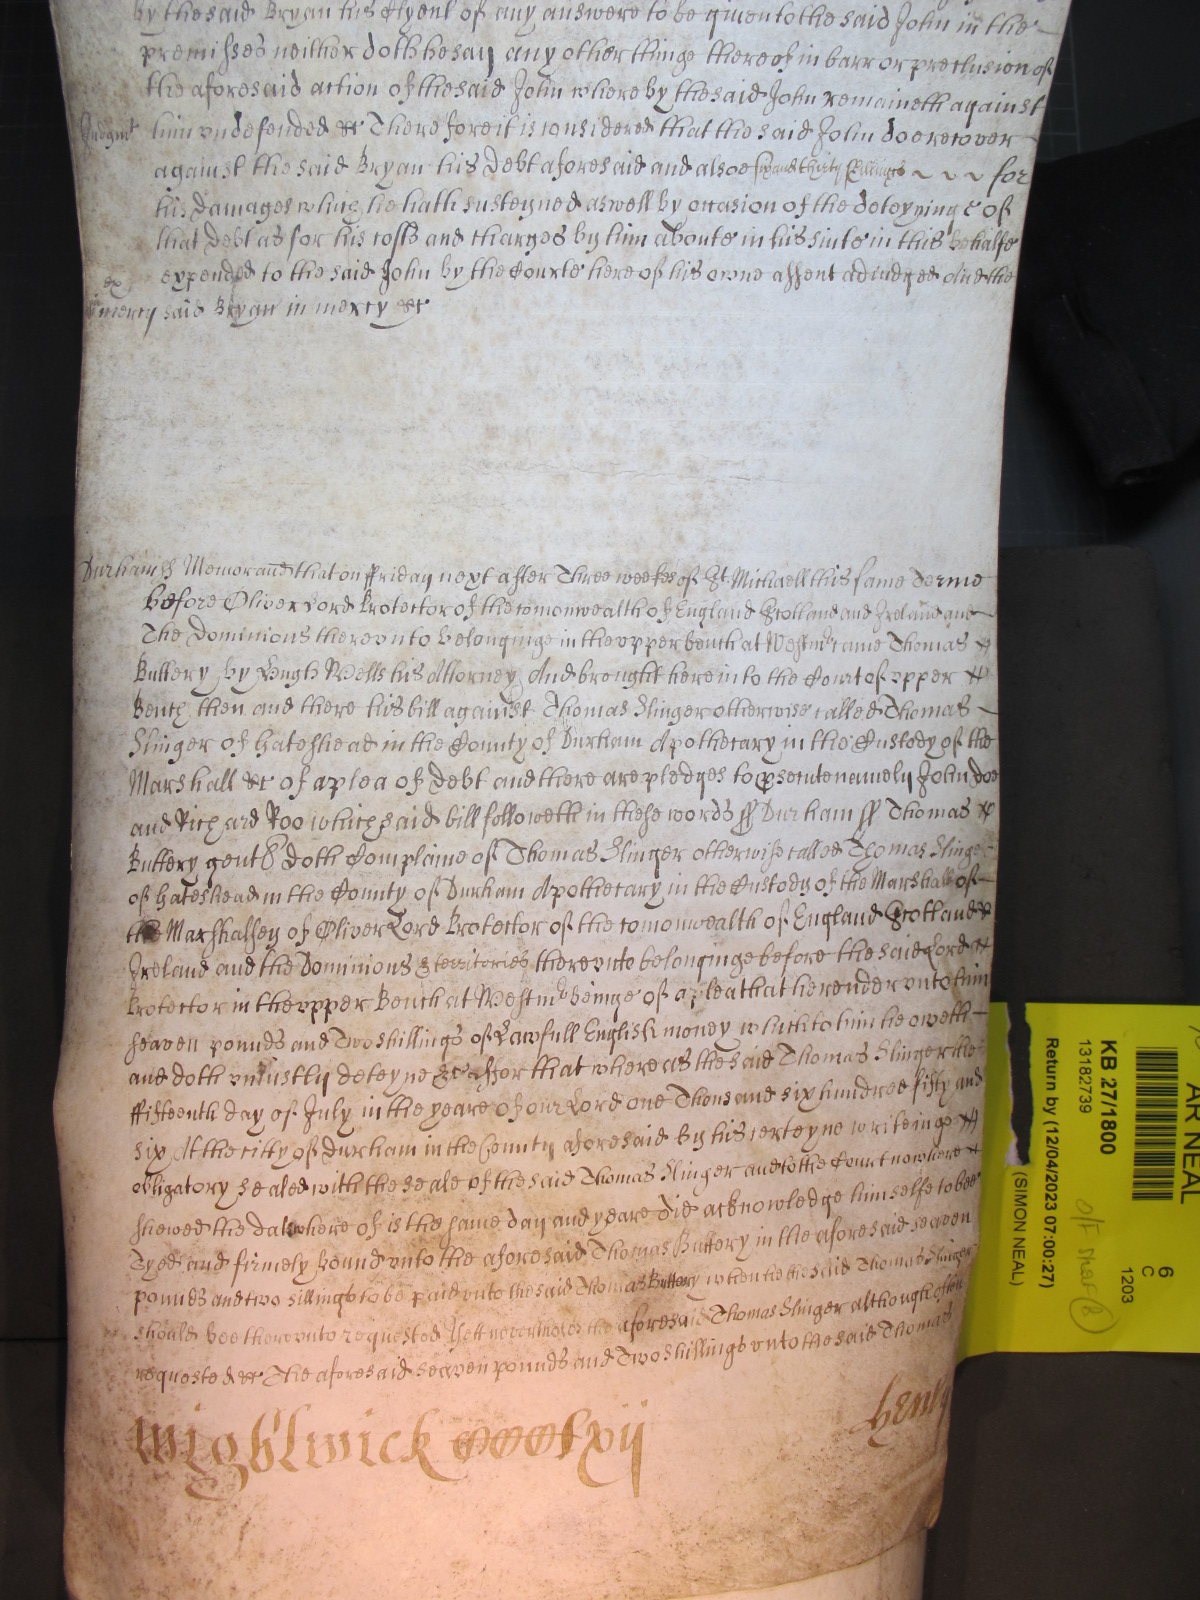 by the said Bryan his Clyent of any answere to be given to the said John in the
premisses neither doth he say any other thinge thereof in barr or preclusion of
the aforesaid action of the said John whereby the said John remaineth against
Judgmt him undefended &c Therefore it is considered that the said John doe recover
against the said Bryan his Debt aforesaid and alsoe six and thirty shillings for
his damages which he hath susteyned aswell by occasion of the deteyninge of
that debt as for his costs and charges by him aboute in his suite in this behalfe
expended to the said John by the Courte here of his owne assent adjudged And the
mercy said Bryan in mercy &c
Durham ss Memorand that on ffriday next after Three weekes of St Michaell this same Terme
before Oliver Lord Protector of the comonwealth of England Scotland and Ireland and
The Dominions thereunto belonginge in the upper bench at Westmr came Thomas
Buttery by Hugh Wells his Attorney And brought here into the Court of upper
Bench then and there his bill against Thomas Slinger otherwise called Thomas
Slinger of Gateshead in the County of Durham Apothecary in the Custody of the
Marshall &c of a plea of Debt and there are pledges to psecute namely John doe
and Richard Roo which said bill followeth in these words ss Durham ss Thomas
Buttery gent doth Complaine of Thomas Slinger otherwise called Thomas Slinger
of Gateshead in the County of Durham Apothecary in the Custody of the Marshall of
the Marshalsey of Oliver Lord Protector of the comonwealth of England Scotland &
Ireland and the Dominions & territories thereunto belonginge before the said Lord
Protector in the upper Bench at Westmr beinge of a plea that he render unto him
seaven pounds and Two shillings of Lawfull English money which to him he oweth
and doth unjustly deteyne &c ffor that whereas the said Thomas Slinger the
ffifteenth day of July in the yeare of our Lord one Thousand six hundred fifty and
six At the citty of Durham in the County aforesaid by his certeyne writeinge
obligatory sealed with the seale of the said Thomas Slinger and to the Court now here
shewed the date whereof is the same day and yeare did acknowledge himselfe to bee
Tyed and firmely bound unto the aforesaid Thomas Buttery in the aforesaid seaven
pounds and two sillings to be paid unto the said Thomas Buttery when he the said Thomas Slinger
should bee thereunto requested Yett neverthelesse the aforesaid Thomas Slinger although often
requested &c The aforesaid seaven pounds and Two shillings unto the said Thomas
Wightwick
Henly
AR NEAL
KB 27/1800
13182739
Return by (12/04/2023 07:00:27)
(SIMON NEAL)
6
C
1203